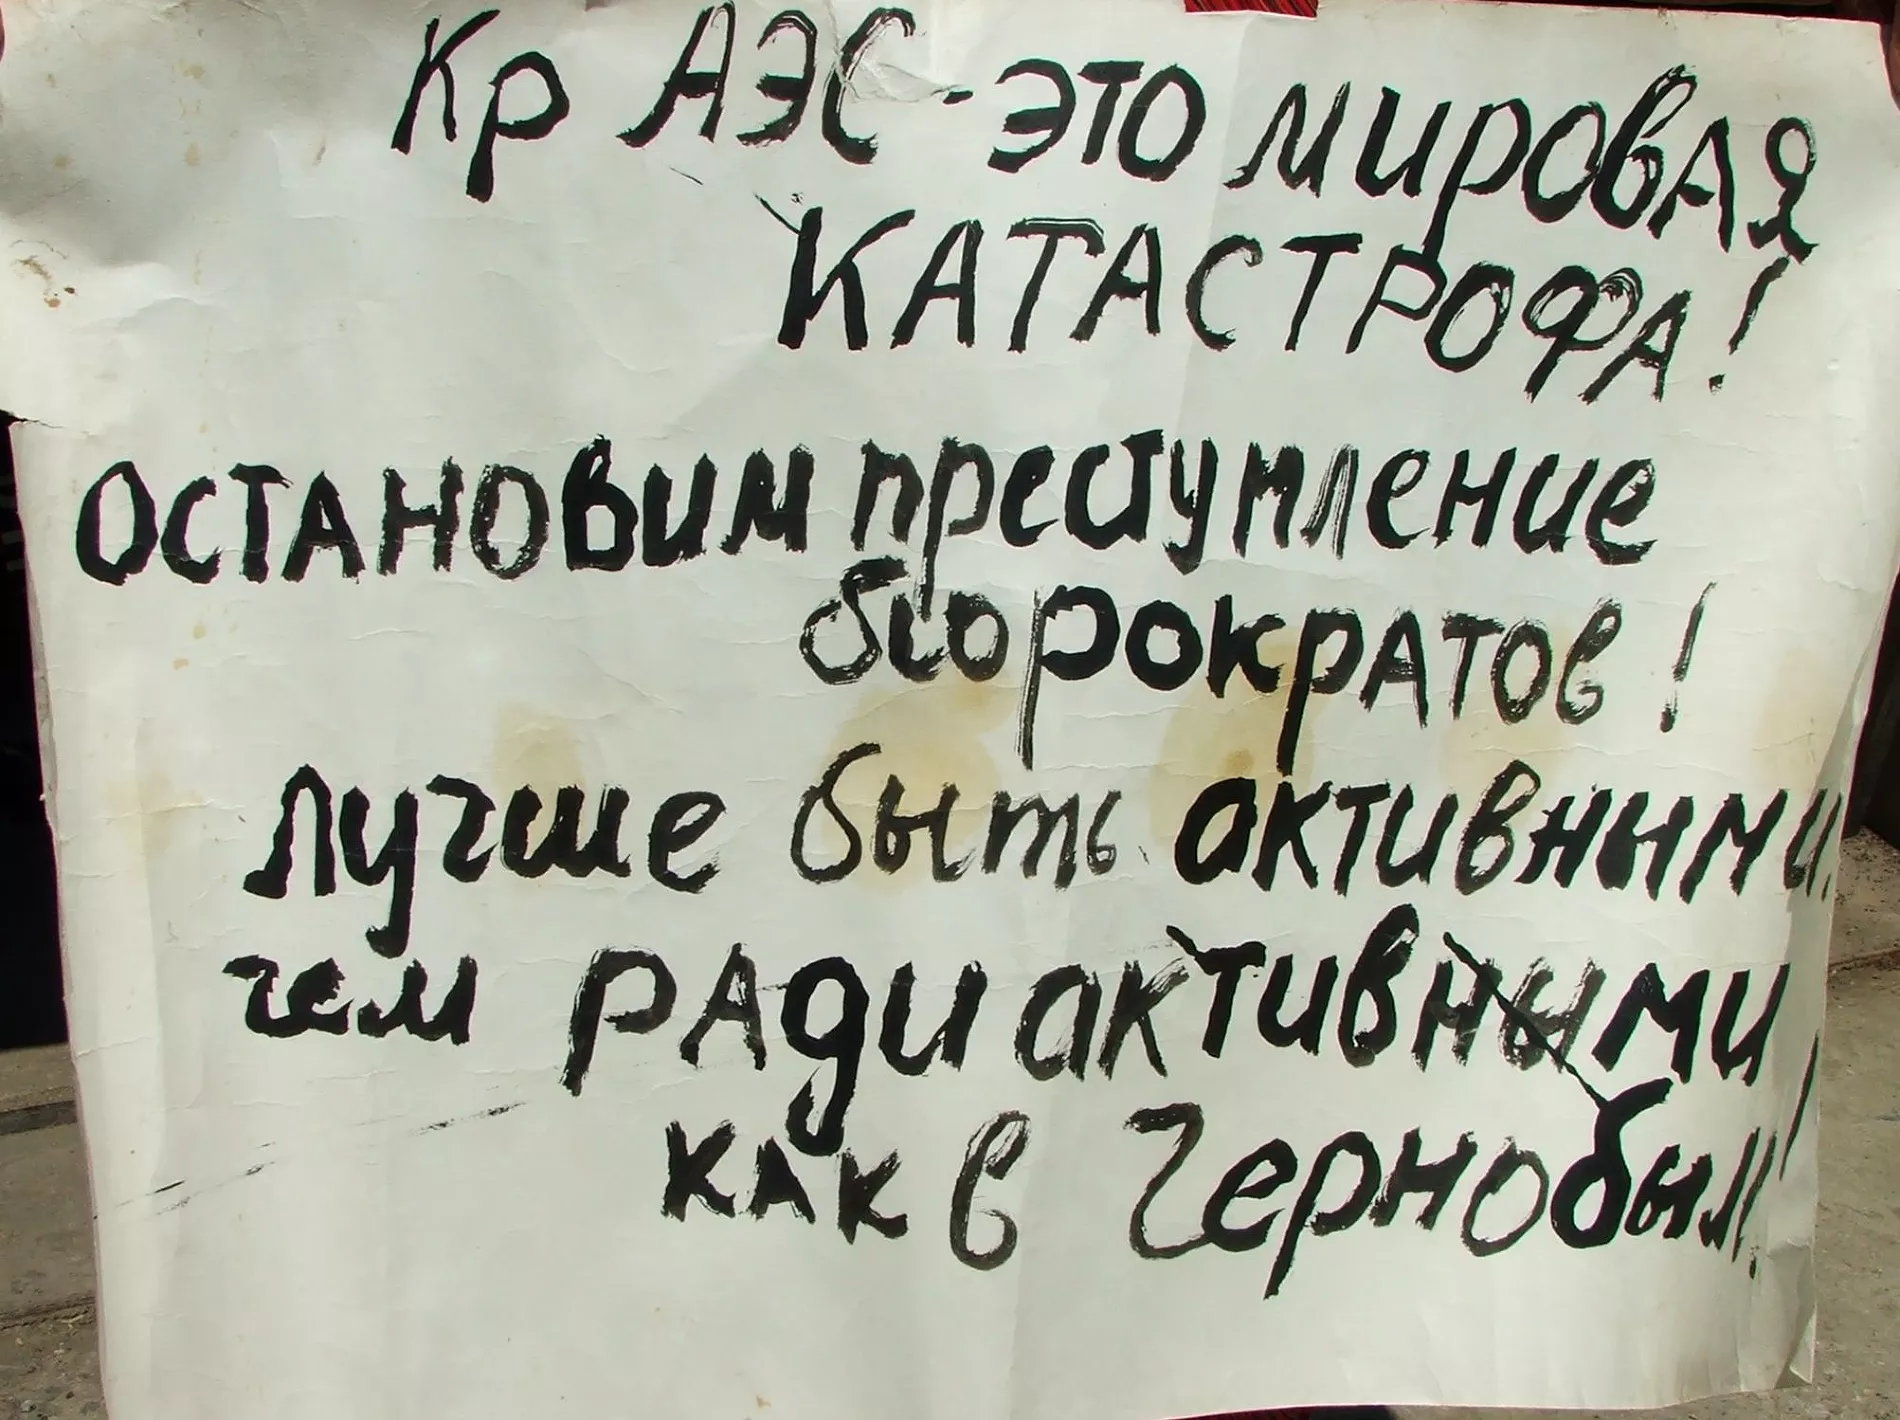 Кр АЭС - это мировая
КАТАСТРОФА!
Остановим преступление
бюрократов!
Лучше быть активными
чем радиактивными
как в Чернобыл!